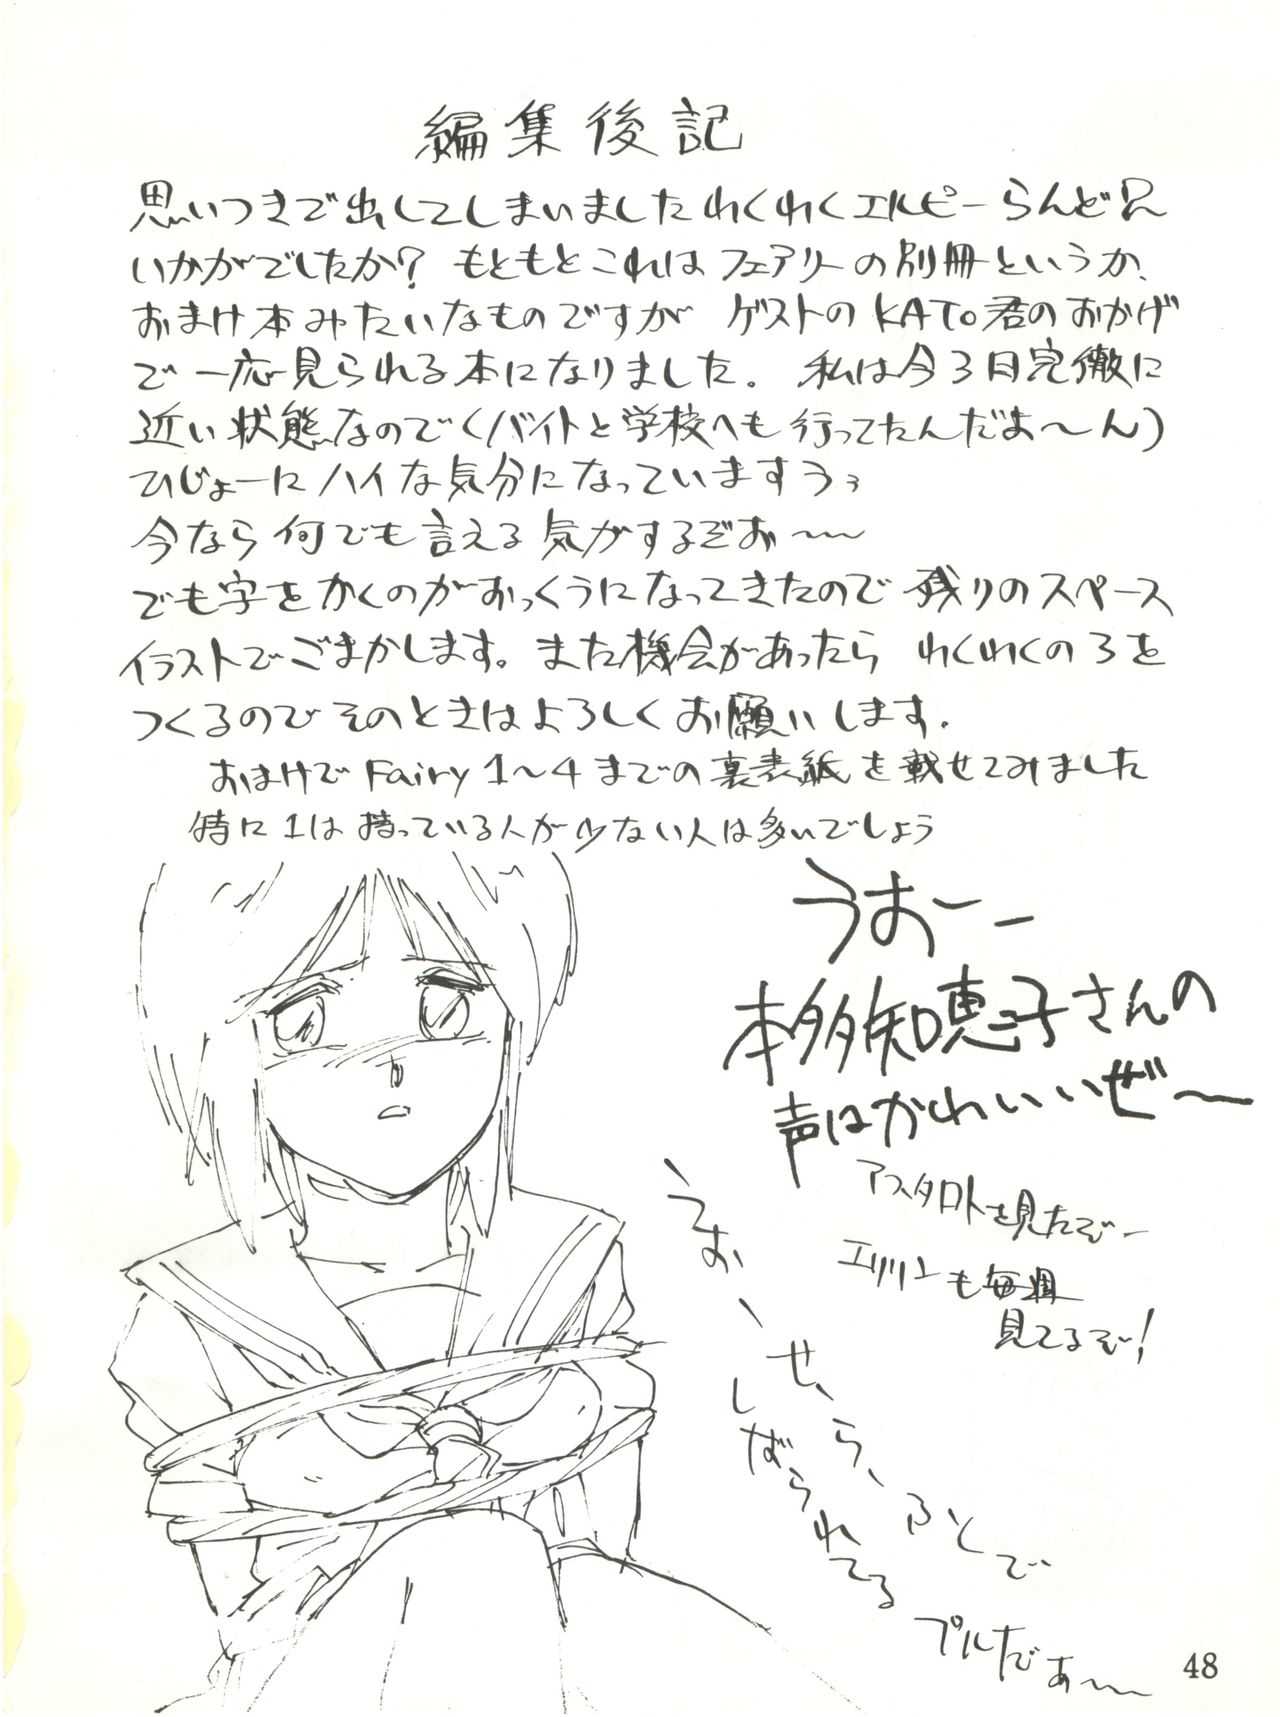 編集後記
思いつきで出してしまいましたわくわくエルピーらんど2
いかがでしたか? もともとこれはフェアリーの別冊というか、
おまけ本みたいなものですが ゲストのKATO君のおかげ
で一応見られる本になりました。 私は今3日完徹に
近い状態なので(バイトと学校へも行ってたんだよ〜ん)
ひじょーにハイな気分になっていますうぅ
今なら何でも言える気がするぞお〜〜
でも字をかくのがおっくうになってきたので残りのスペース
イラストでごまかします。また機会があったら わくわくの3を
つくるので そのときはよろしくお願いします.
おまけで Fairy 1〜4までの裏表紙を載せてみました
特に1は持っている人が少ない人は多いでしょう
うおーー
本多知恵子さんの
声はかわいいぜ〜
アスタロトを見たぞー
エリリンも毎週
見てるぞ!
うお、せ、ら、ふくで
しばられてる
プルだぁ〜
48